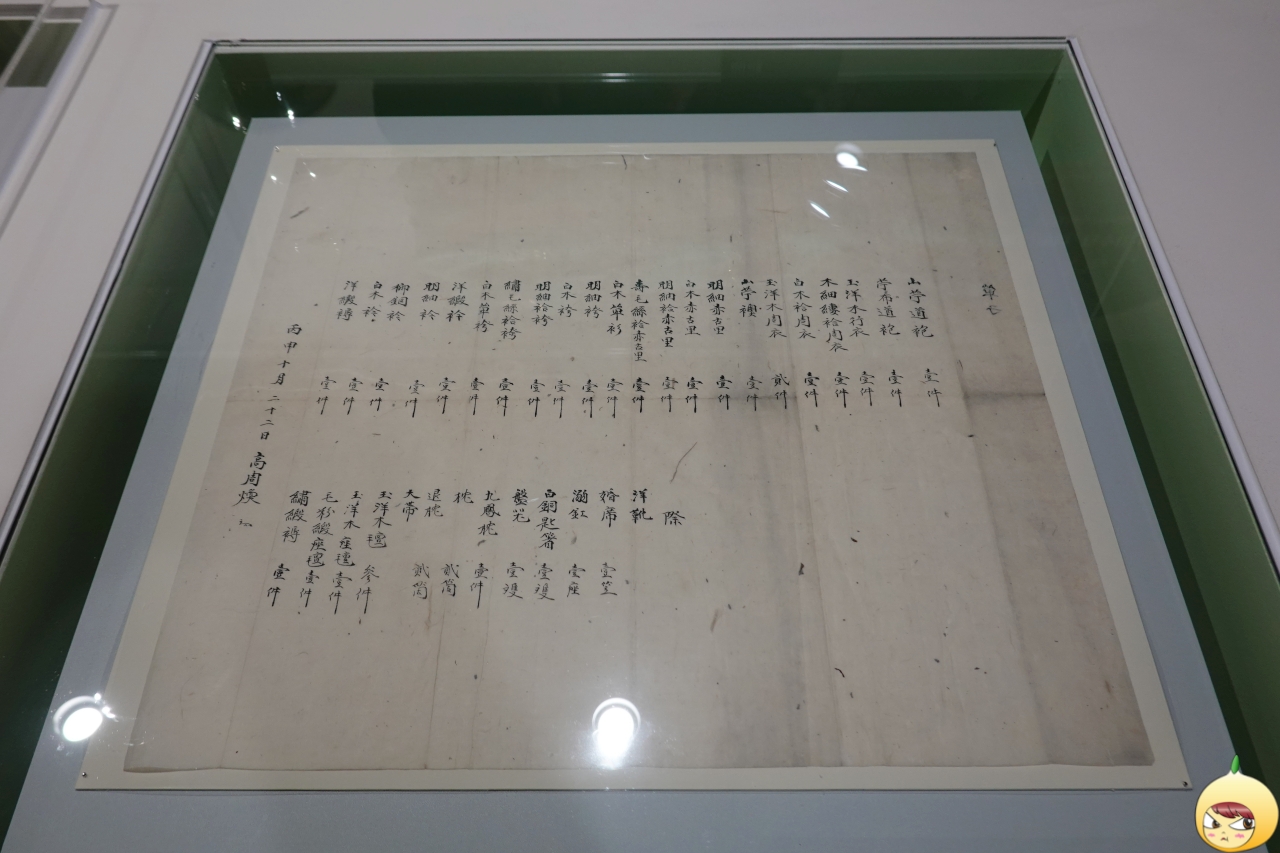 山苧道袍 壹件
苧布道袍 壹件
玉洋木行衣 壹件
木細縷袷周衣 壹件
白木袷周衣 壹件
玉洋木周衣 貳件
山苧襖 壹件
明紬赤古里 壹件
白木赤古里 壹件
明紬袷赤古里 壹件
毛綠袷赤古里 壹件
白木單衫 壹件
明紬袴 壹件
白木袴 壹件
明紬袷袴 壹件
繡毛綠袷袴 壹件
白木單袴 壹件
洋緞衿 壹件
明紬衿 壹件
壹件
白木衿 壹件
洋緞褥 壹件
際
洋靴
席 壹笠
溺缸 壹座
白銅匙箸 壹
盤 壹
枕 壹件
枕 貳箇
退枕 貳箇
大帶
玉洋木氊 參件
玉洋木座氊 壹件
毛衫緞座氊 壹件
繡緞褥 壹件
丙申十月二十二日 高周煥